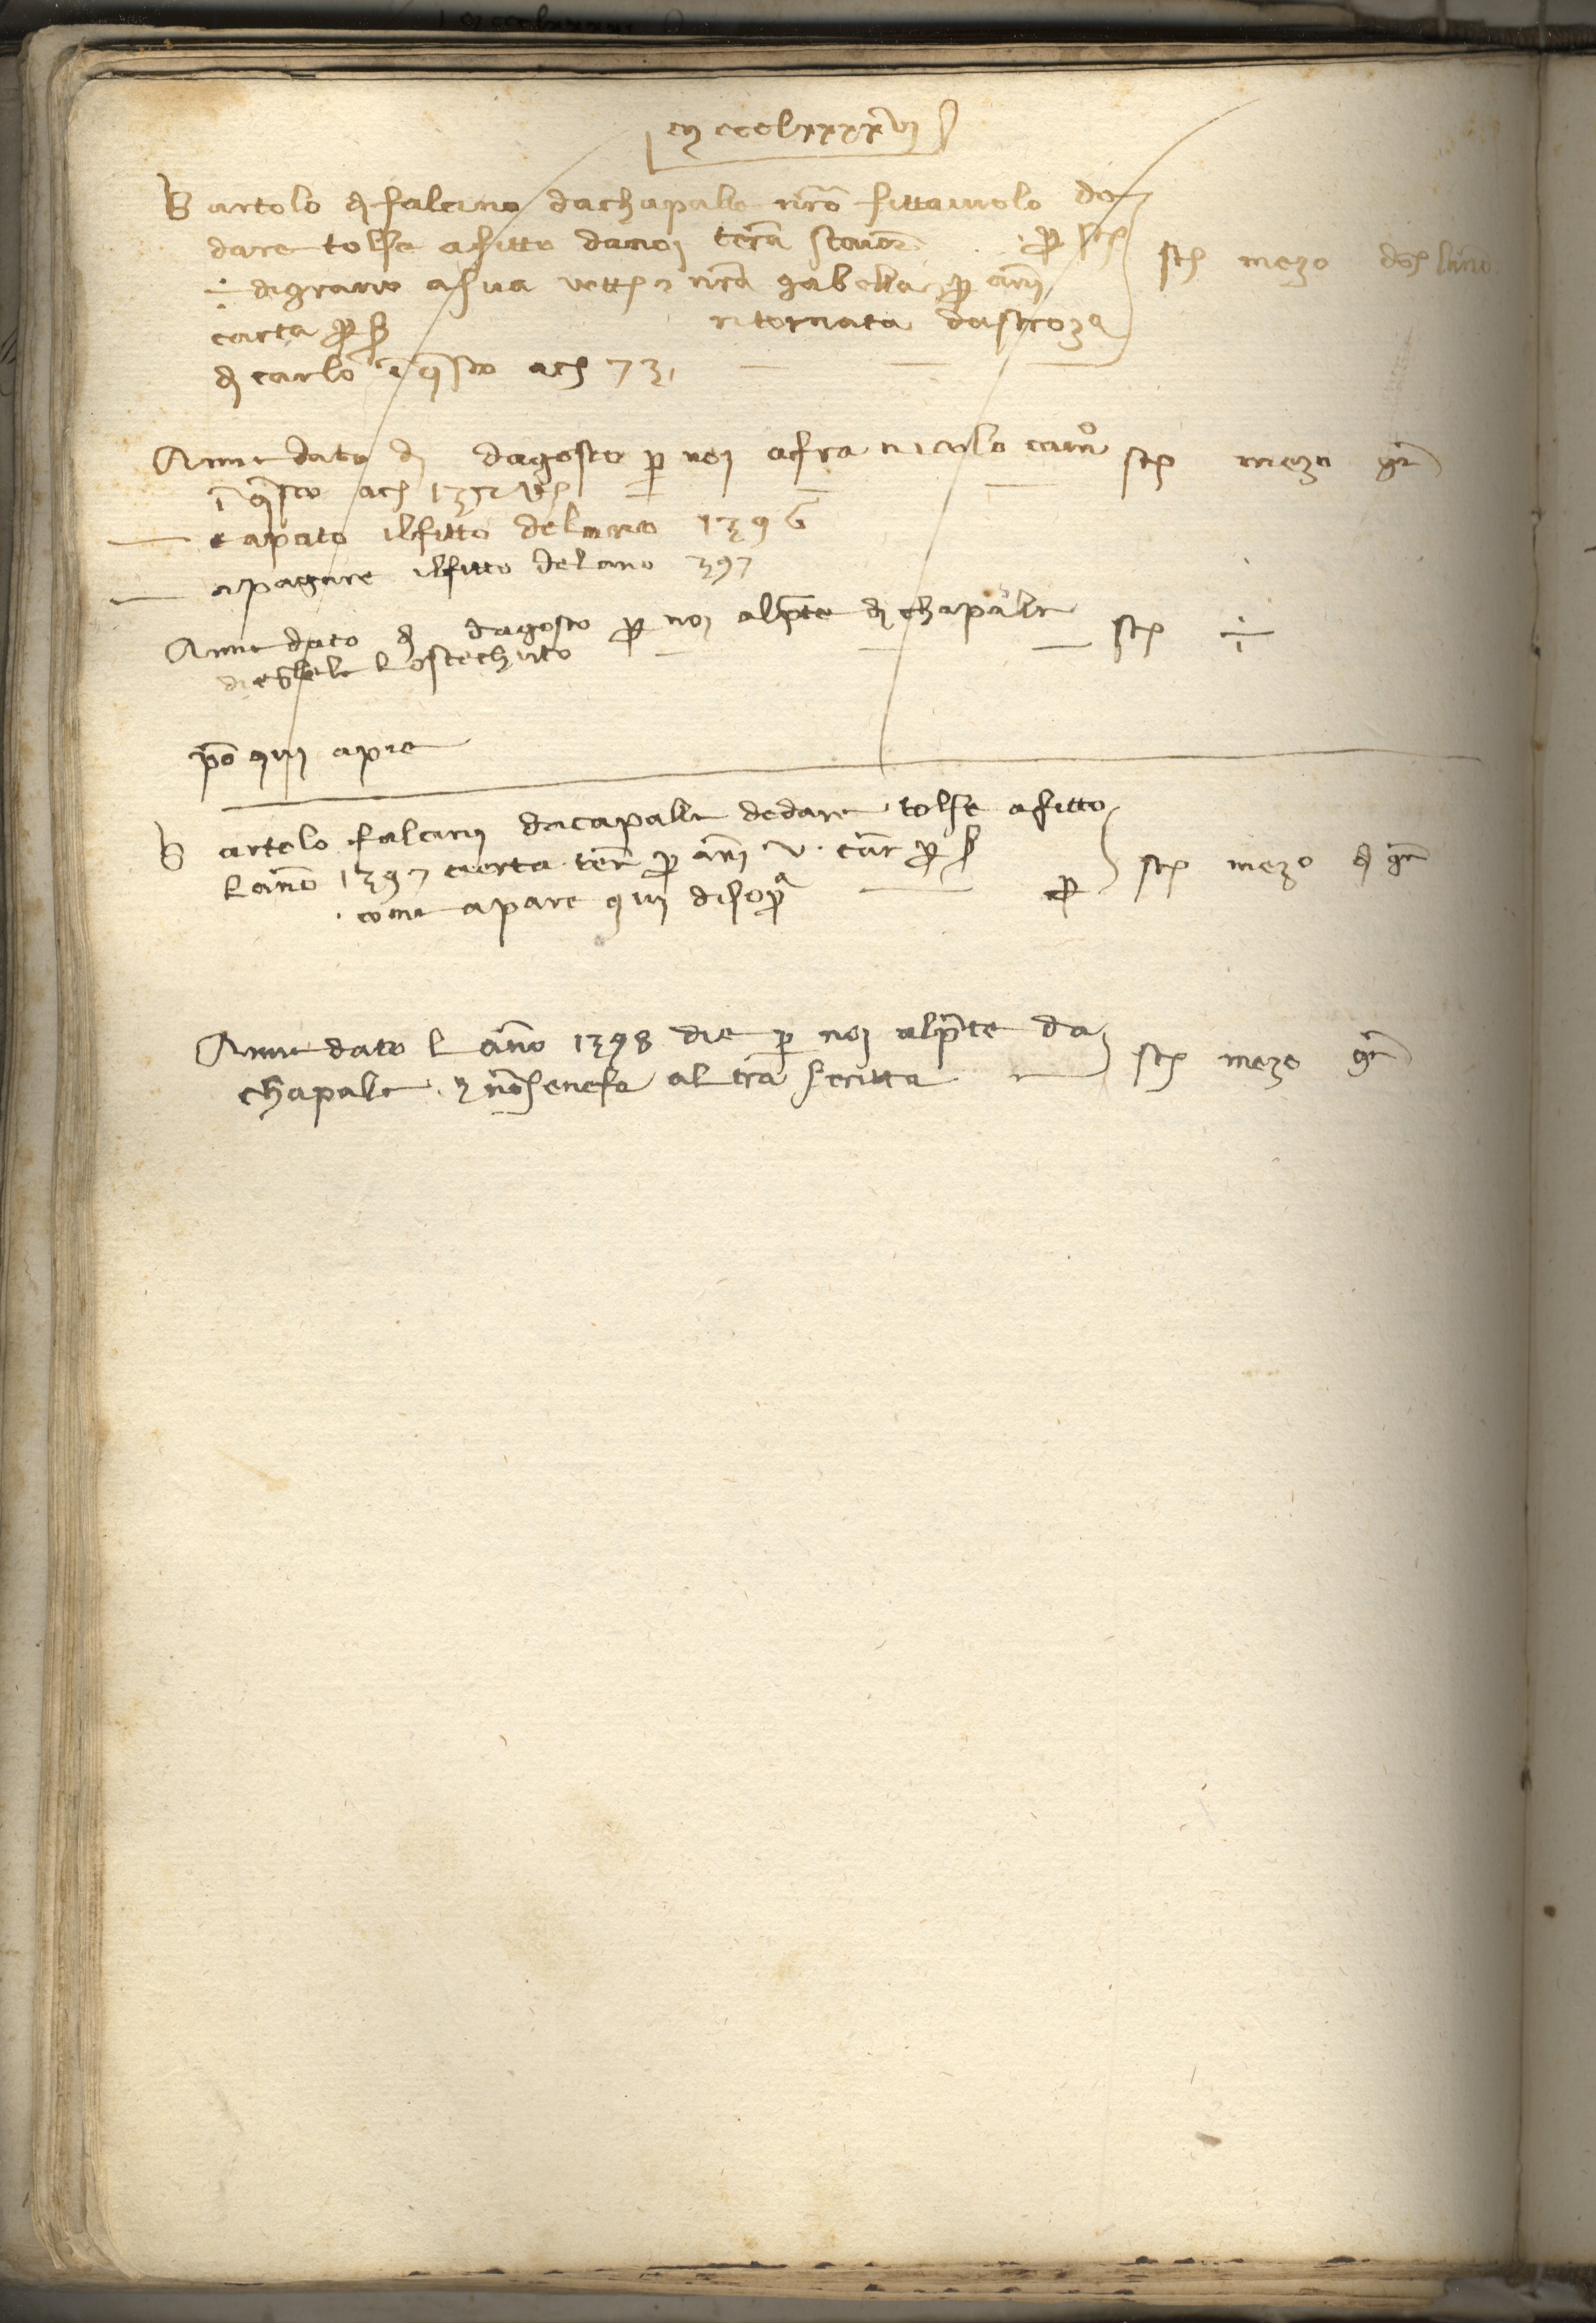 m ccclxxxxvi
Bartolo di falcino dachapalle nr̄o fittaiuolo de
dare tolse afitto danoi tera staior
÷ digrano asua nr̄a gabella p ani st mezo lano
carta p s ritornata dastroza
di carlo i q̄sto ac 73
Anne dato di dagosto p noi afra nicolo cam° st mezo gr
i q̄sto ac
e apato ilfitto delano 1396
apagare ilfitto delano 397
Anne dato di dagosto p noi alp̄te di chapalle st ÷
po qui apie
Bartolo falcini dacapalle dedare tolse afitto
lano 1397 certa ter p ani v car p s st mezo di gr
come apare qui disopa p
Anne dato lano 1398 die p noi alp̄te da
chapalle nosenefa altra scritta st mezo gr